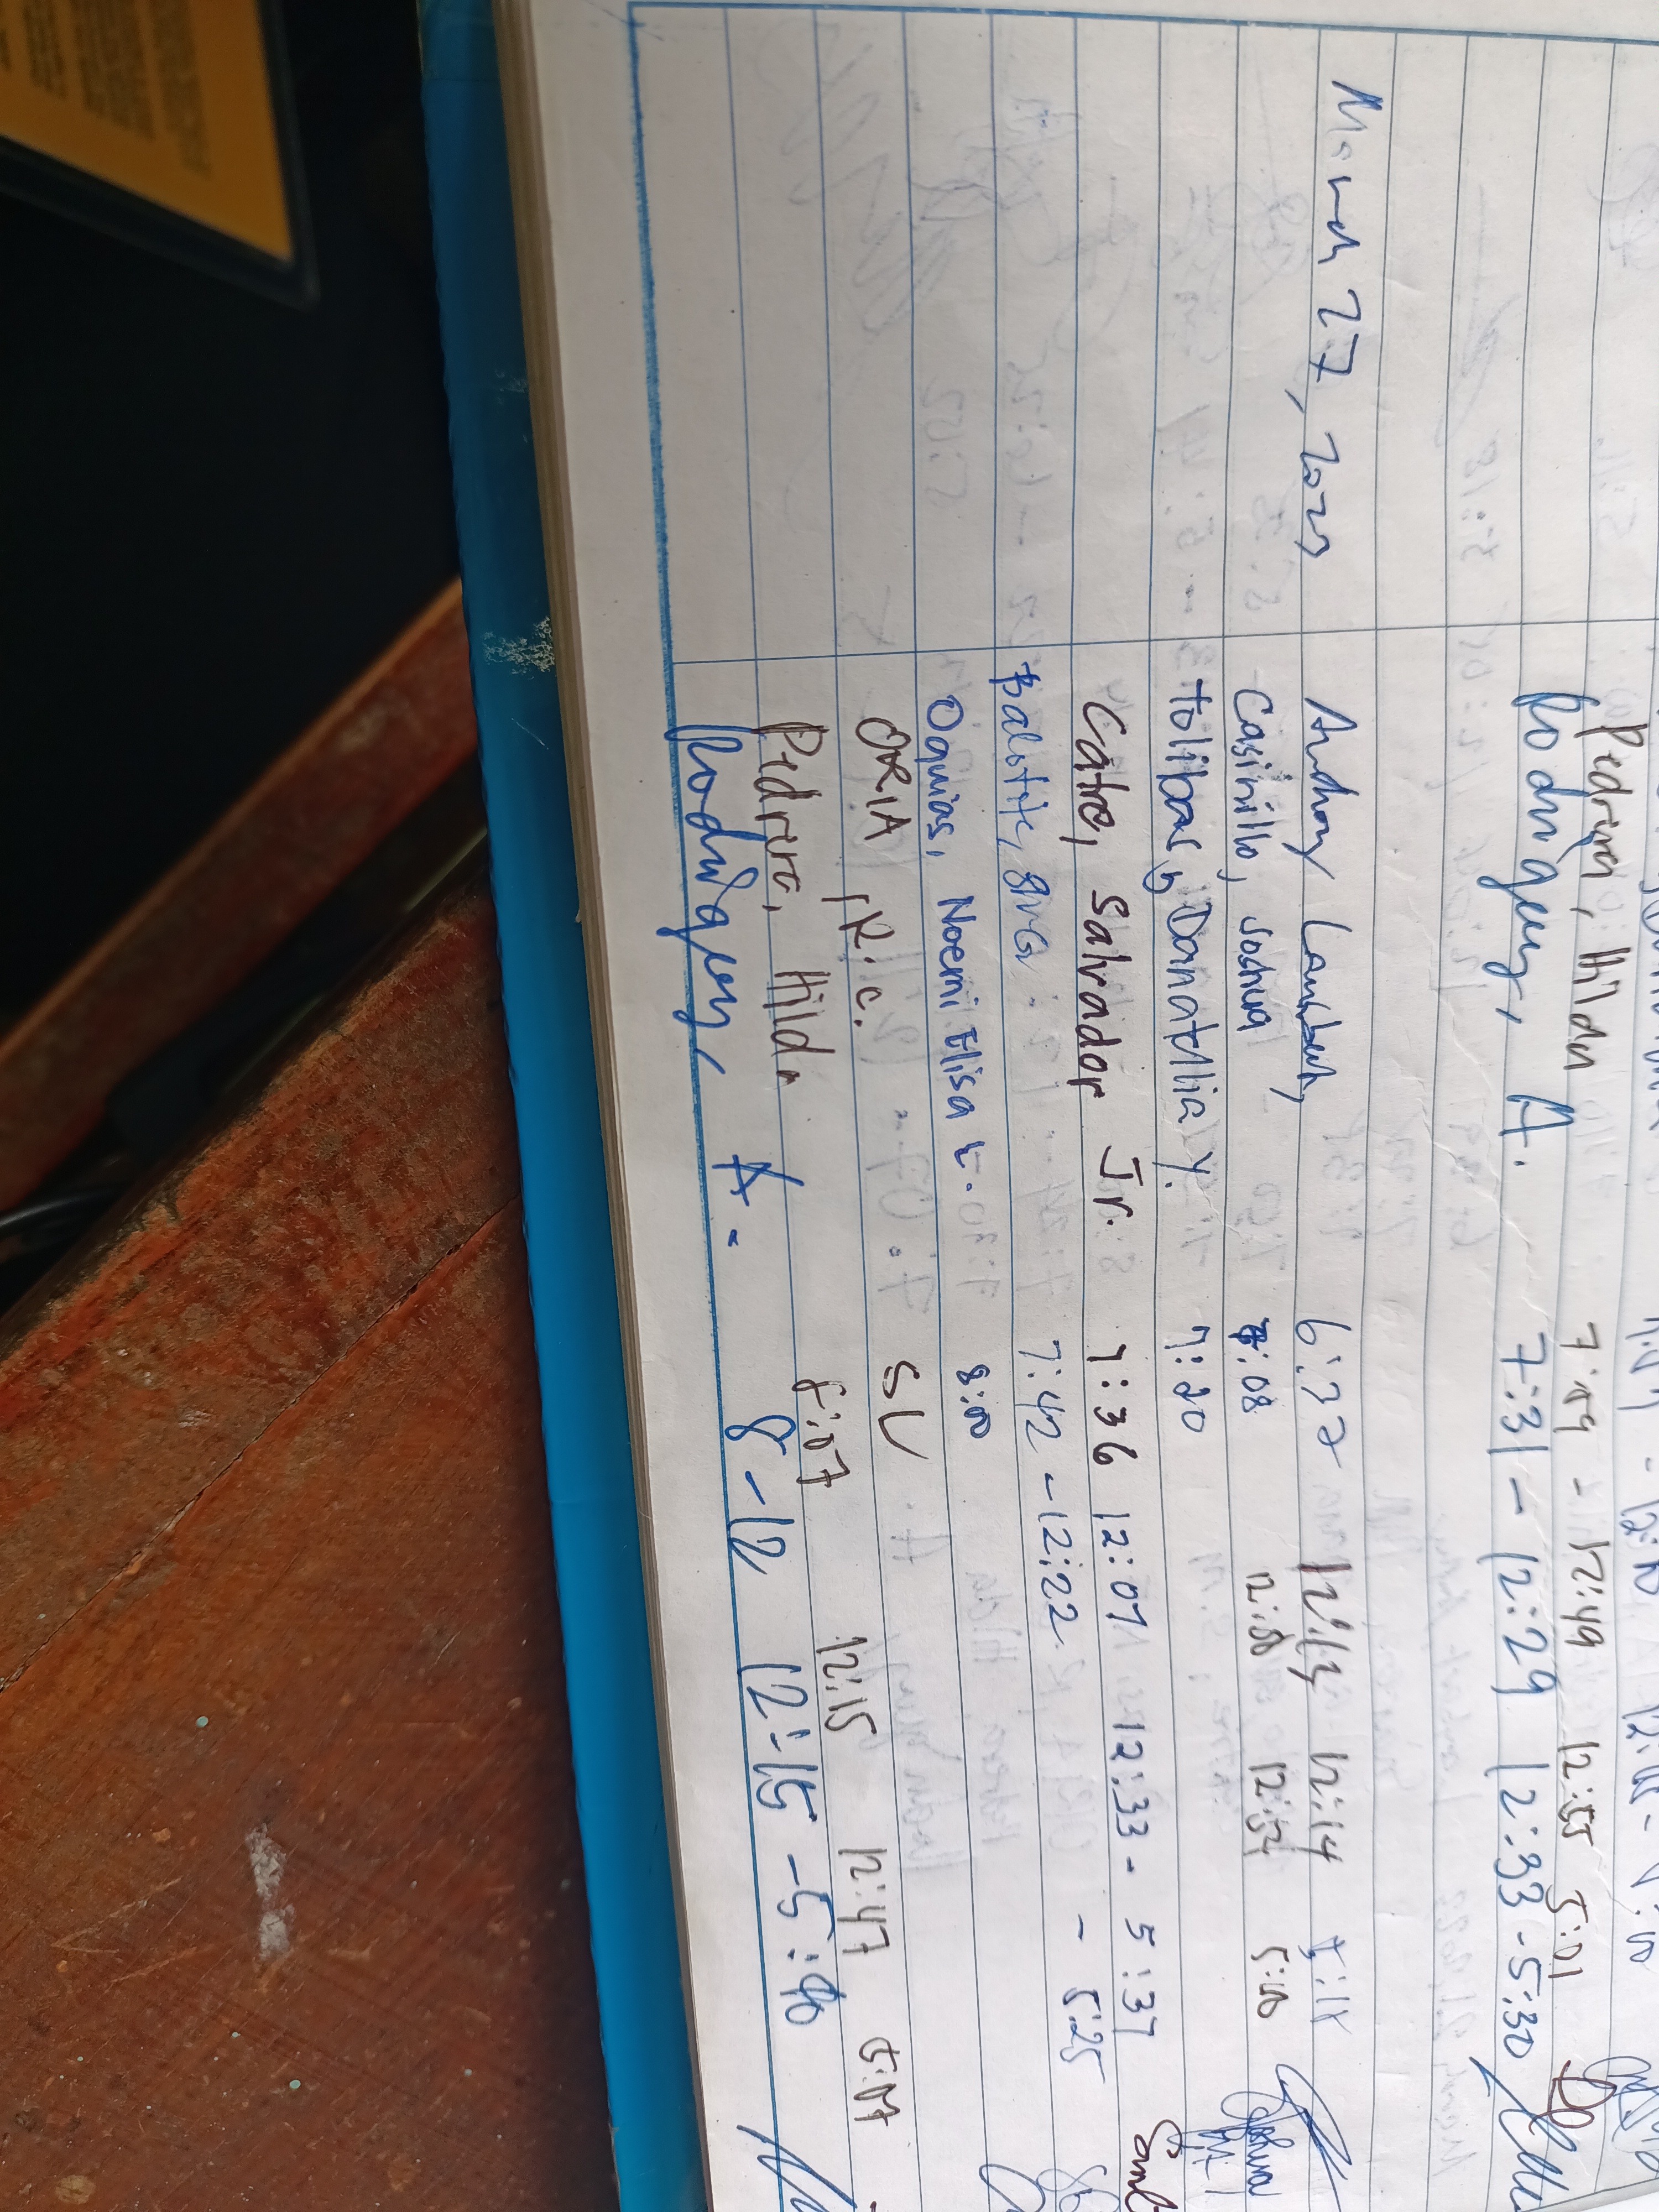 7:09 - 12:49 12:55 5:01
Rodriguez, A. 7:31 - 12:29 12:33 - 5:30
March 27, 2025
Anthony Lambert, 6:37 12:13 12:14 5:18
Casinillo, Joshua 7:08 12:50 12:52 5:00
Tolibas, Danatellia Y. 7:20
Catre, Salvador Jr. 7:36 12:07 12:33 - 5:37
7:42 - 12:22 - 5:25
Oquias, Noemi Elisa L. 8:00
ORIA, R.C. SL
Pedrera, Hilda 8:07 12:15 12:47 5:07
Rodriguez, A. 8-12 12:15 - 5:40